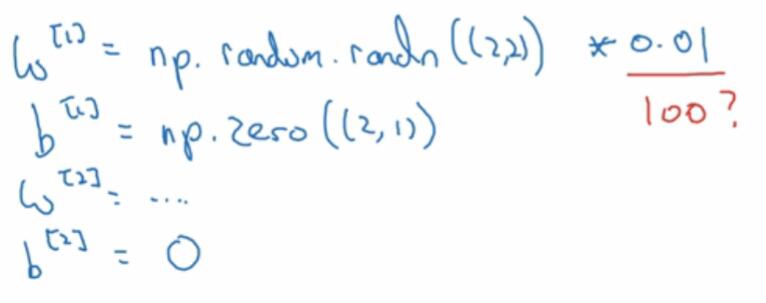 W^[1] = np.random.randn((2,2)) * 0.01
100?
b^[1] = np.zero((2,1))
W^[2] = ....
b^[2] = 0